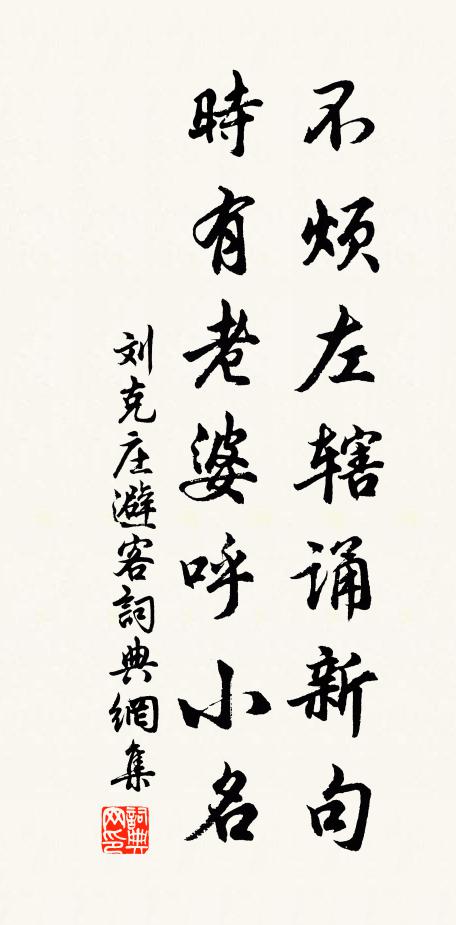 不烦左辖诵新句
時有老婆呼小名
刘克庄避客詞典網集
詞典网印